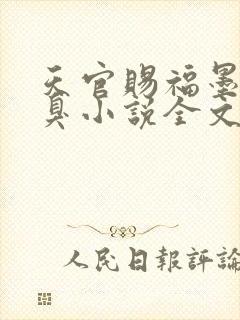 天官賜福墨
臭小説全文
人民日報評論